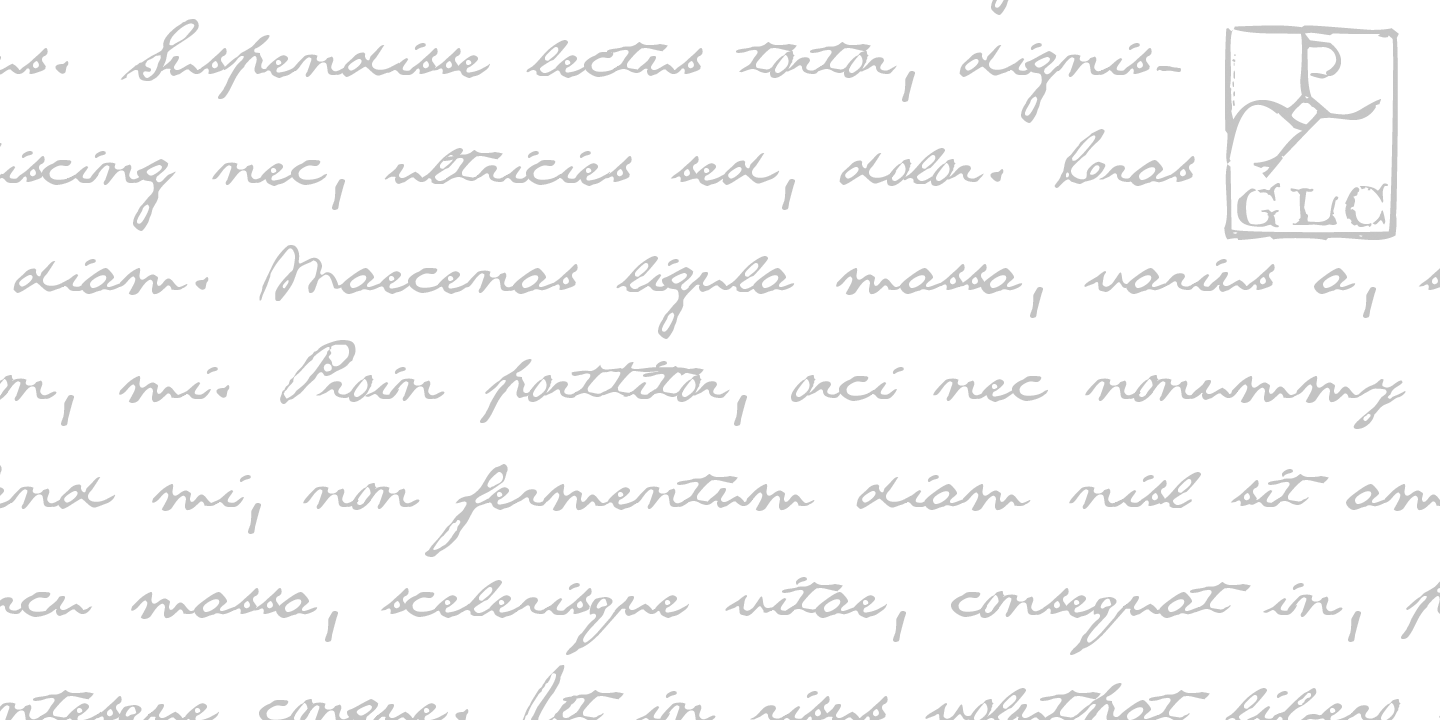 us. Suspendisse lectus tortor, dignis-
iscing nec, ultricies sed, dolor. Cras
GLC
diam. Maecenas ligula massa, varius a, s
on, mi. Proin porttitor, orci nec nonummy
end mi, non fermentum diam nisl sit am
rcu massa, scelerisque vitae, consequat in, p
ntesque congue. Ut in risus volutpat libero